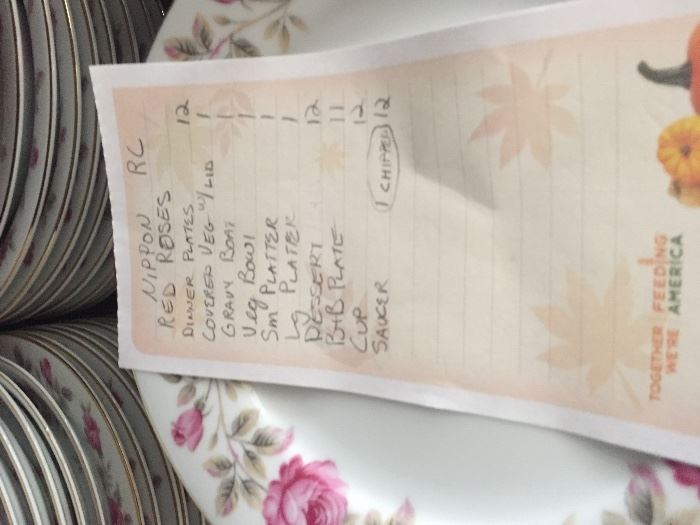 NIPPON RC
RED ROSES
DINNER PLATES 12
COVERED VEG W/LID 1
GRAVY BOAT 1
Veg BOWl 1
Sm PLATTER 1
Lg PLATTER 1
DESSERT 12
B+B PLATE 11
CUP 12
SAUCER 1 CHIPPED 12
TOGETHER
WE'RE
FEEDING
AMERICA